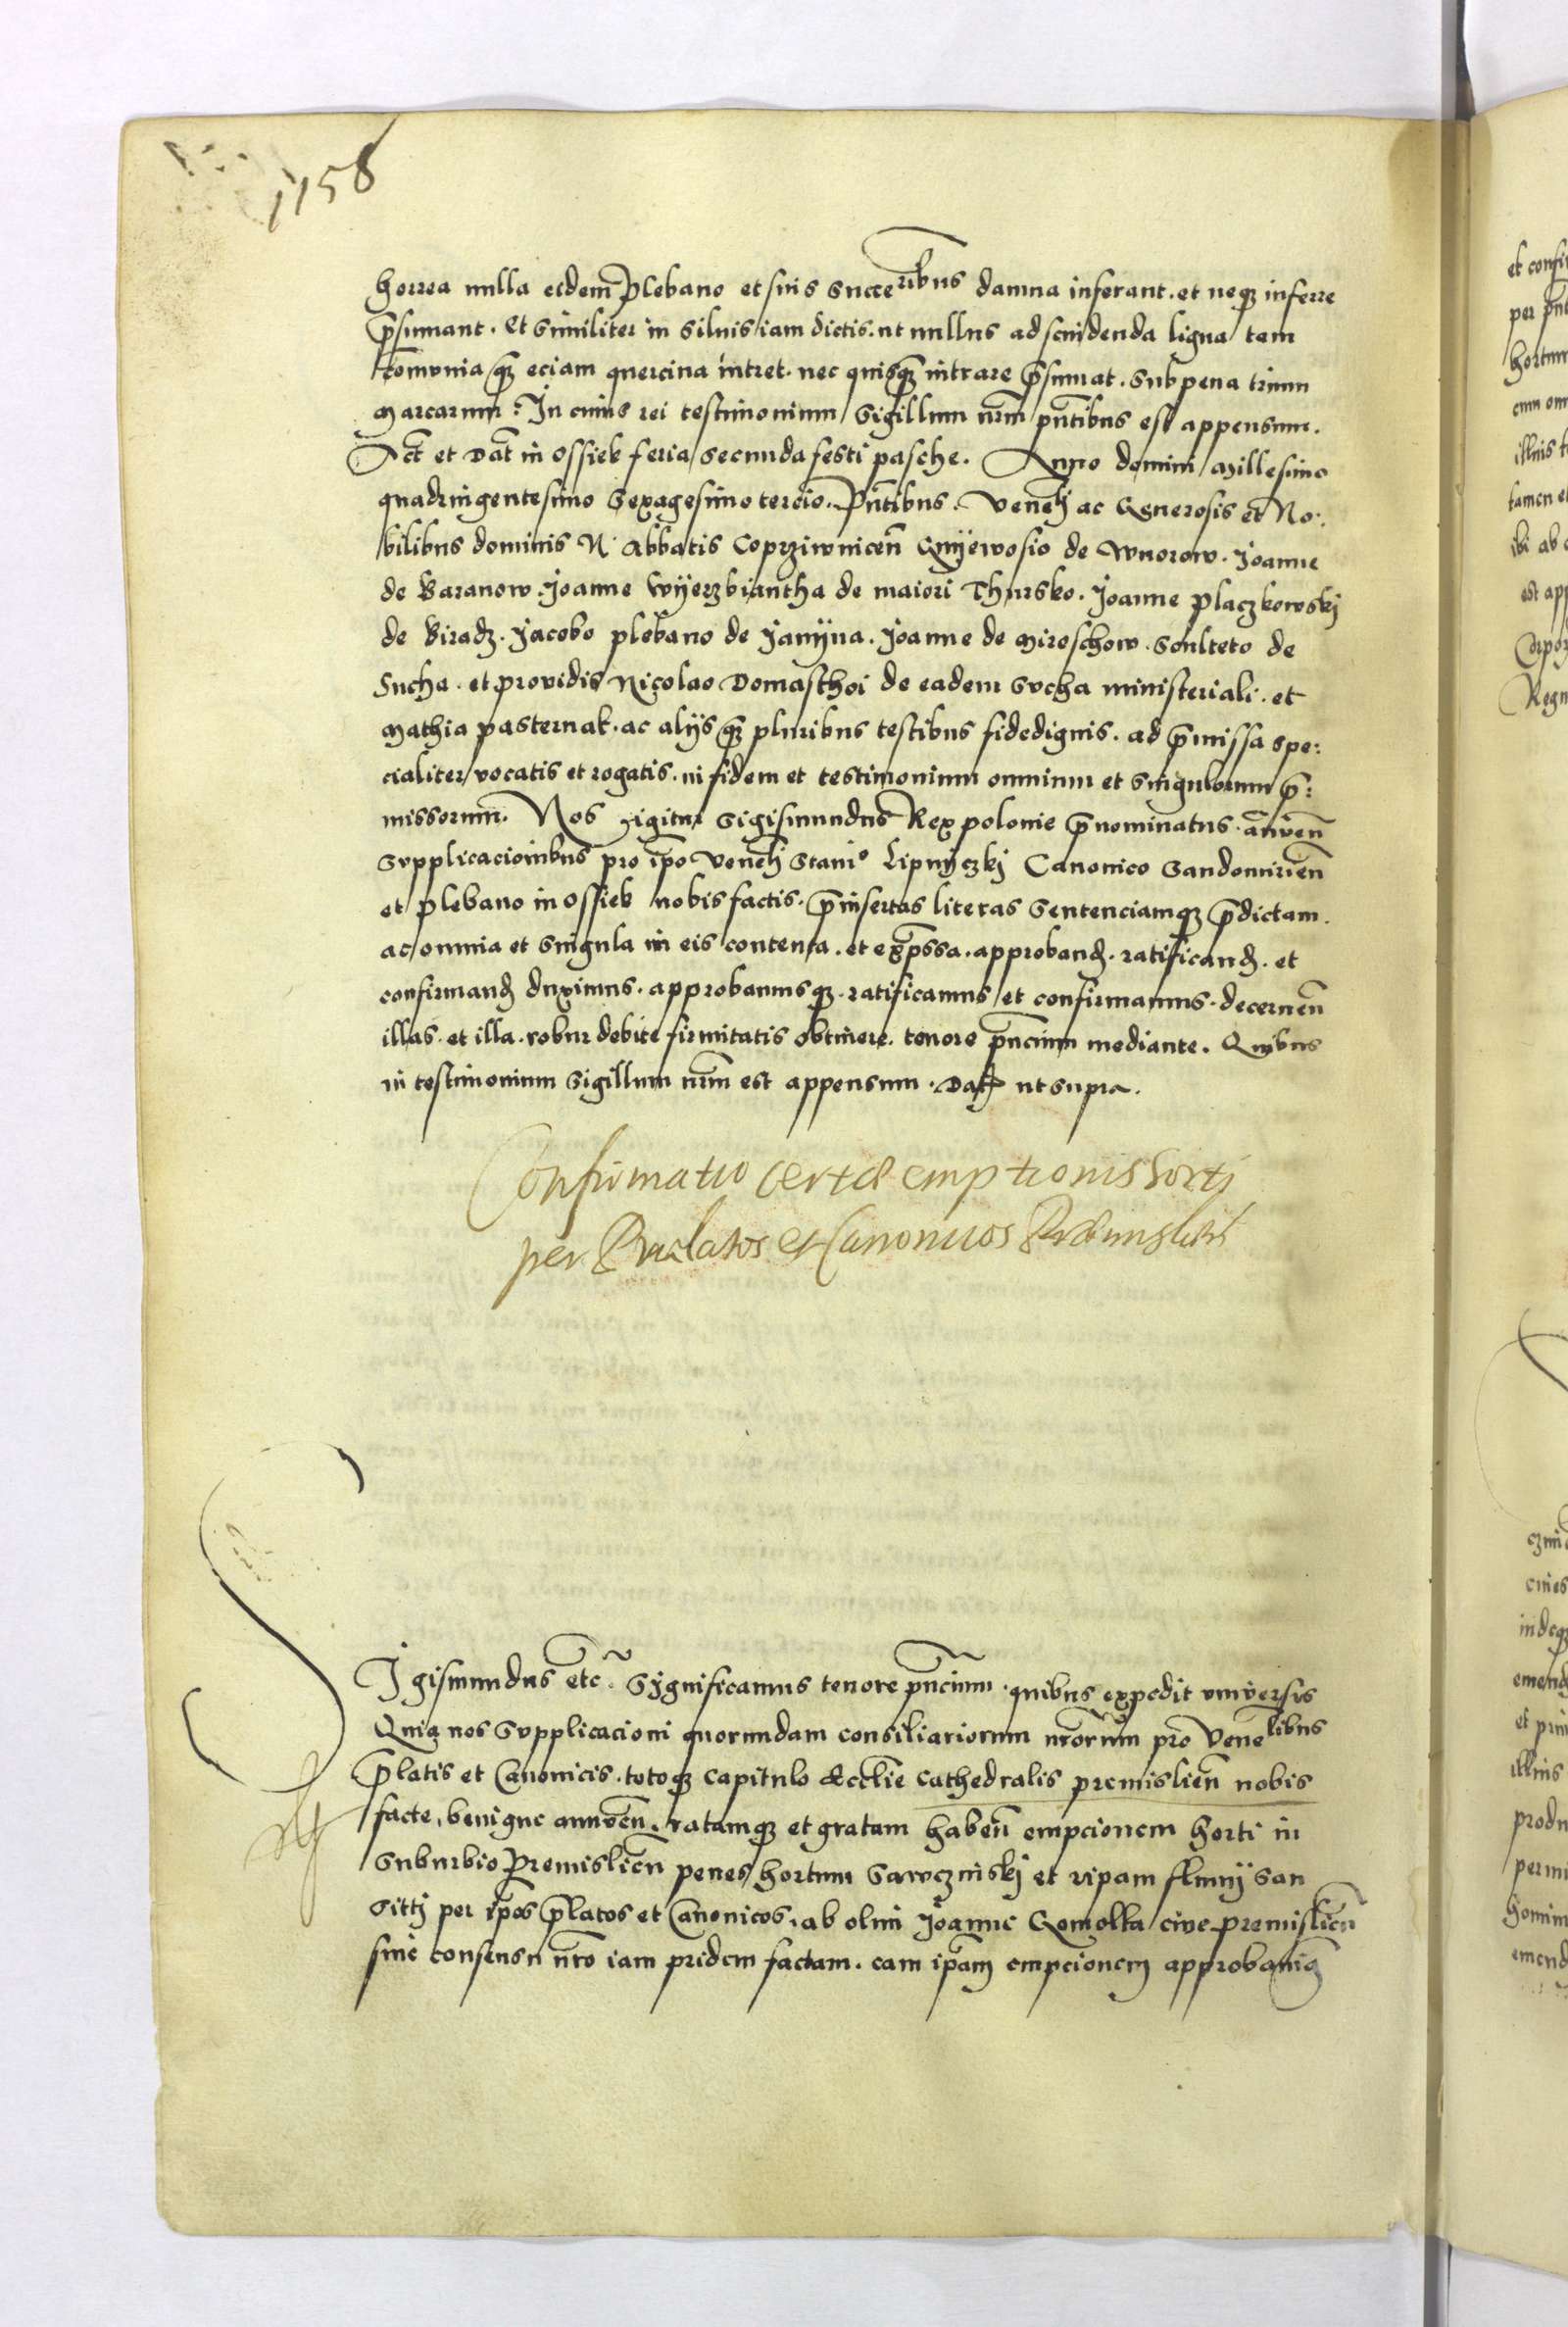 1158
horrea nulla eidem plebano et suis succeribus damna inferant. et neqꝫ inferre
p̄sumant. Et similiter in siluis iam dictis. ut nullus ad scindenda ligna tam
com̄unia qꝫ eciam quercina intret. nec quisqꝫ intrare p̄sumat. sub pena trium
Marcarum: In cuius rei testimonium Sigillum nr̄m pn̄tibus est appensum.
Act̄ et Dat̄ in Ossiek feria secunda festi pasche. Anno domini Millesimo
quadringentesimo Sexagesimo tercio. Pn̄tibus. Veneh ac Generosis et No:
bilibus dominis N. Abbatis Coprziwniceñ Gnyewosio de Wnorow. Joanne
de Baranow. Joanne Wyerzbiantha de maiori Thursko. Joanne Placzkowskj
de Biradz. Jacobo plebano de Janyna. Joanne de Miroschow. Sculteto de
Sucha. et prouidis Nicolao Domaschoi de eadem Sucha ministeriali. et
Mathia Pasternak. ac alijs qꝫ pluribus testibus fidedignis. ad p̄missa spe:
cialiter vocatis et rogatis. in fidem et testimonium omnium et singulorum p̄:
missorum. Nos igitur Sigismundus Rex polonie p̄nominatus. annueñ
supplicacionibus pro ip̄o Veneh Stanio Lipnyczkj Canonico Sandomirieñ
et plebano in Ossiek nobis factis. p̄insertas literas Sentenciamqꝫ p̄dictam.
ac omnia et singula in eis contenta. et exp̄ssa. approband. ratificand. et
confirmand duximus. approbamusqꝫ. ratificamus et confirmamus. decerneñ
illas. et illa. robur debite firmitatis obtinere. tenore pn̄cium mediante. Quibus
in testimonium Sigillum nr̄m est appensum. Dat ut supra.
Confirmatio certæ emptionis horti
per Prælatos et Canonicos Præmislien̄
Igismundus etc̄. Significamus tenore pn̄cium. quibus expedit vniuersis
Quia nos supplicacioni quorundam consiliariorum nr̄orum pro Venelibus
p̄latis et Canonicis. totoqꝫ Capitulo Eccl̄ie Cathedralis premislieñ nobis
facte, benigne annueñ. ratamqꝫ et gratam habeñ empcionem horti in
Suburbio Premislieñ penes hortum Sawczinskj et ripam fluuij San
sittj per ip̄os p̄latos et Canonicos. ab olim Joanne Gomolka ciue premislieñ
sine consensu nr̄o iam pridem factam. eam ip̄am empcionem approbandā